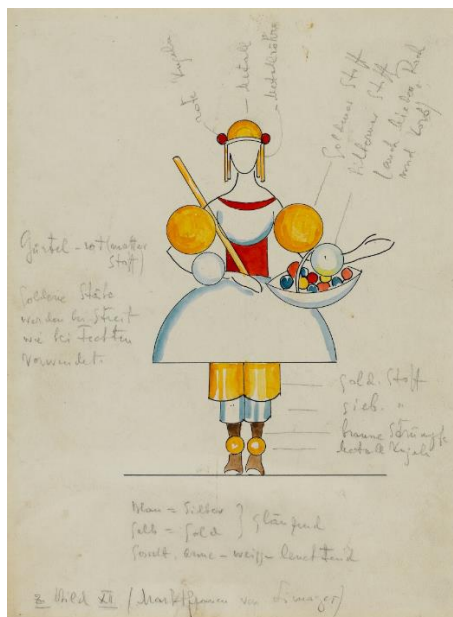 rote Kugeln
Metall
Metallröhre
Goldener Stoff
Silberner Stoff
(auch
Rock
und Korb)
Gürtel - rot (matter
Stoff)
Goldene Stäbe
werden bei Streit
wie bei Fechten
verwendet.
Gold. Stoff
"
braune Strümpfe
Metall Kugeln
Blau = Silber
Gelb = Gold } glänzend
Gesicht, Arme - weiss - leuchtend
z Bild XII (Marktfrauen von